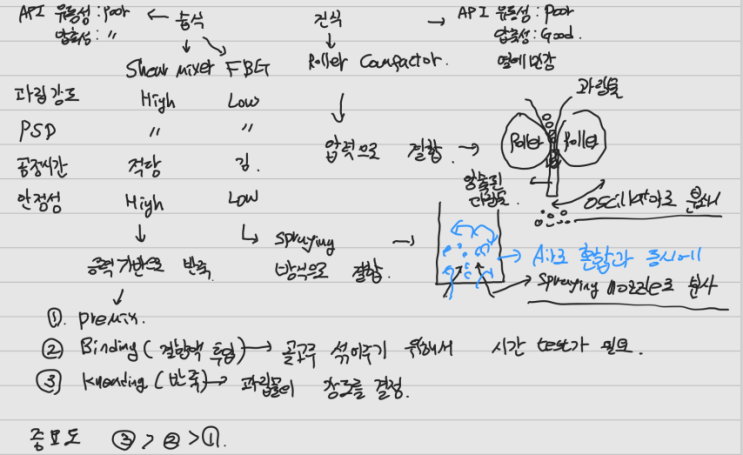 API 유동성: Poor ← 습식 건식 → API 유동성: Poor
압축성: 〃 압축성: Good.
Shear mixer FBG Roller Compactor. 열에 민감
과립강도 High Low 과립물
PSD 〃 〃 압력으로 결합. → Roller Roller
공정시간 적당 긺. 압출된
안정성 High Low OSCillator로 분쇄
↳ spraying 방식으로 결합. → → Air로 혼합과 동시에
반죽 Spraying nozzle로 분사
①. premix.
② Binding (결합액 투입) → 골고루 섞어주기 위해서 시간 test가 필요.
③ kneading (반죽) → 과립물의 강도를 결정.
중요도 ③ > ② > ①.